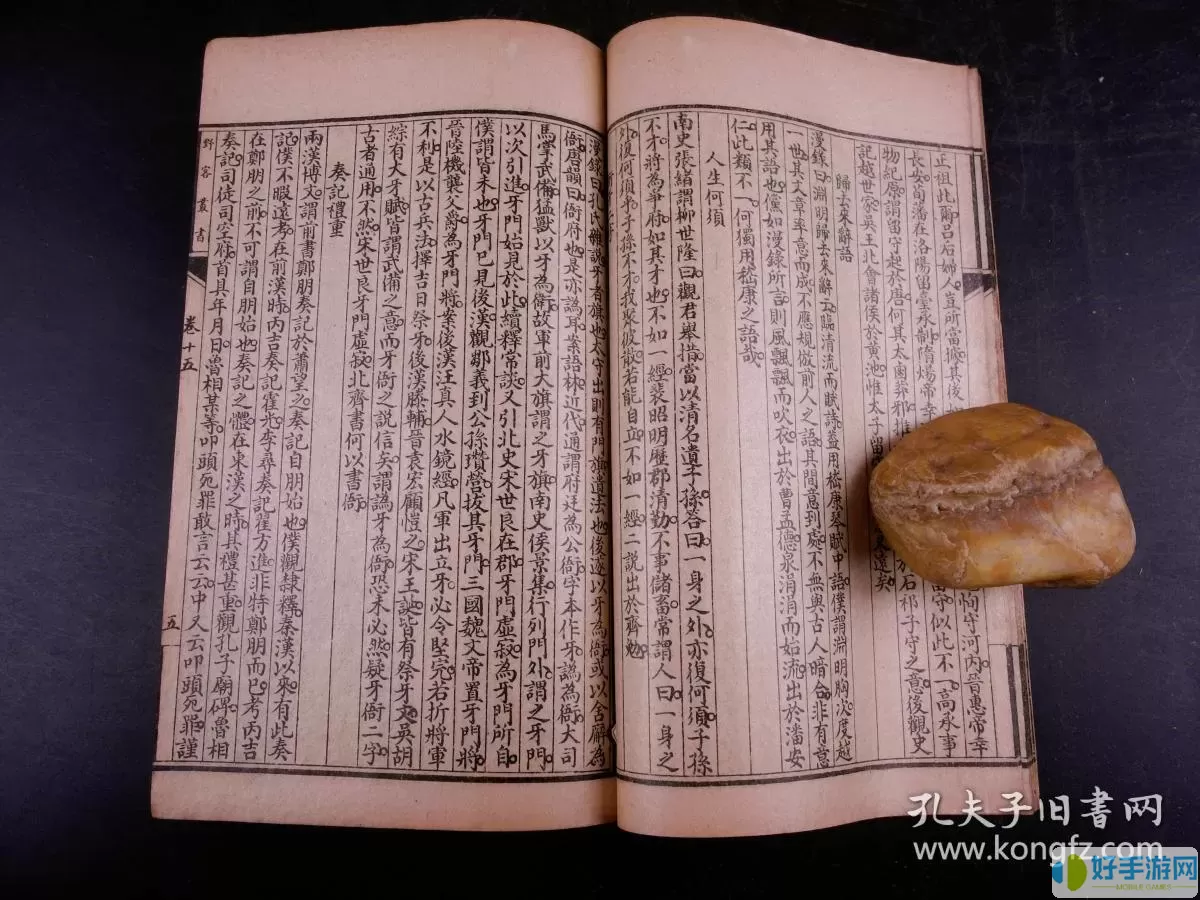 正祖此爾呂后婦人豈所當據其後
長安荀潘在洛陽留臺承制隋煬帝幸
物紀原謂留守起於唐何其太鹵莽邪推
記越世家吳王北會諸侯於黃池惟太子留
恂守河內晉惠帝幸
留守似此不一高承事
於石祁子守之意後觀史
遠矣
歸去來辭語
漫錄曰淵明歸去來辭云臨清流而賦詩蓋用嵇康琴賦中語僕謂淵明胸次度越
一世其文章率意而成不應規倣前人之語其間意到處不無與古人暗合非有意
用其語也儻如漫錄所言則風飄飄而吹衣出於曹孟德泉涓涓而始流出於潘安
仁此類不一何獨用嵇康之語哉
人生何須
南史張緒謂柳世隆曰觀君舉措當以清名遺子孫答曰一身之外亦復何須子孫
不才將為爭府如其才也不如一經裴昭明歷郡清勤不事儲畜常謂人曰一身之
外復何須乎子孫不才我聚彼散若能自立不如一經二說出於齊勉
漫錄曰孔氏雜說牙者旗也太守出則有門旗遺法也後遂以牙為衙或以舍廨為
衙唐韻曰衙府也是亦謂耳案語林近代通謂府廷為公衙字本作牙譌為衙大司
馬掌武備猛獸以牙為衛故軍前大旗謂之牙旗南史侯景集行列門外謂之牙門
以次引進牙門始見於此續釋常談又引北史宋世良在郡牙門虛寂為牙門所自
僕謂皆未也牙門已見後漢鄒義到公孫瓚營拔其牙門三國魏文帝置牙門將
晉陸機襲父爵為牙門將案後漢汪真人水鏡經凡軍出立牙必令堅完若折將軍
不利是以古兵法擇吉日祭牙後漢滕輔晉袁宏顧愷之宋王誕皆有祭牙文吳胡
綜有大牙賦皆謂武備之意而牙衙之說信矣謂為牙為衙恐未必然疑牙衙二字
古者通用不然宋世良牙門虛寂北齊書何以書衙
奏記禮重
兩漢博文謂前書鄭朋奏記於蕭望之奏記自朋始也僕觀隸釋秦漢以來有此奏
記僕不暇遠考在前漢時丙吉奏記霍光李尋奏記翟方進非特鄭朋而已考丙吉
在鄭朋之前不可謂自朋始也奏記之體在東漢之時其禮甚重觀孔子廟碑魯相
奏記司徒司空府首具年月日魯相某等叩頭死罪敢言云云中又云叩頭死罪謹
野客叢書
卷十五
五
孔夫子旧書网
www.kongfz.com
好手游网
MOBILE GAMES